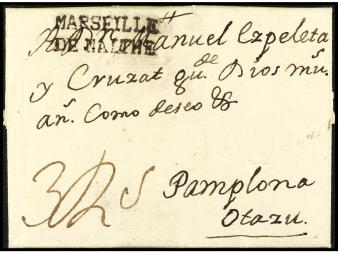 MARSEILLE
DE MALTHE
A Dn. Manuel Ezpeleta
y Cruzat gu.de Dios ms.
añs. Como deseo &
3Rs
Pamplona
Otazu.